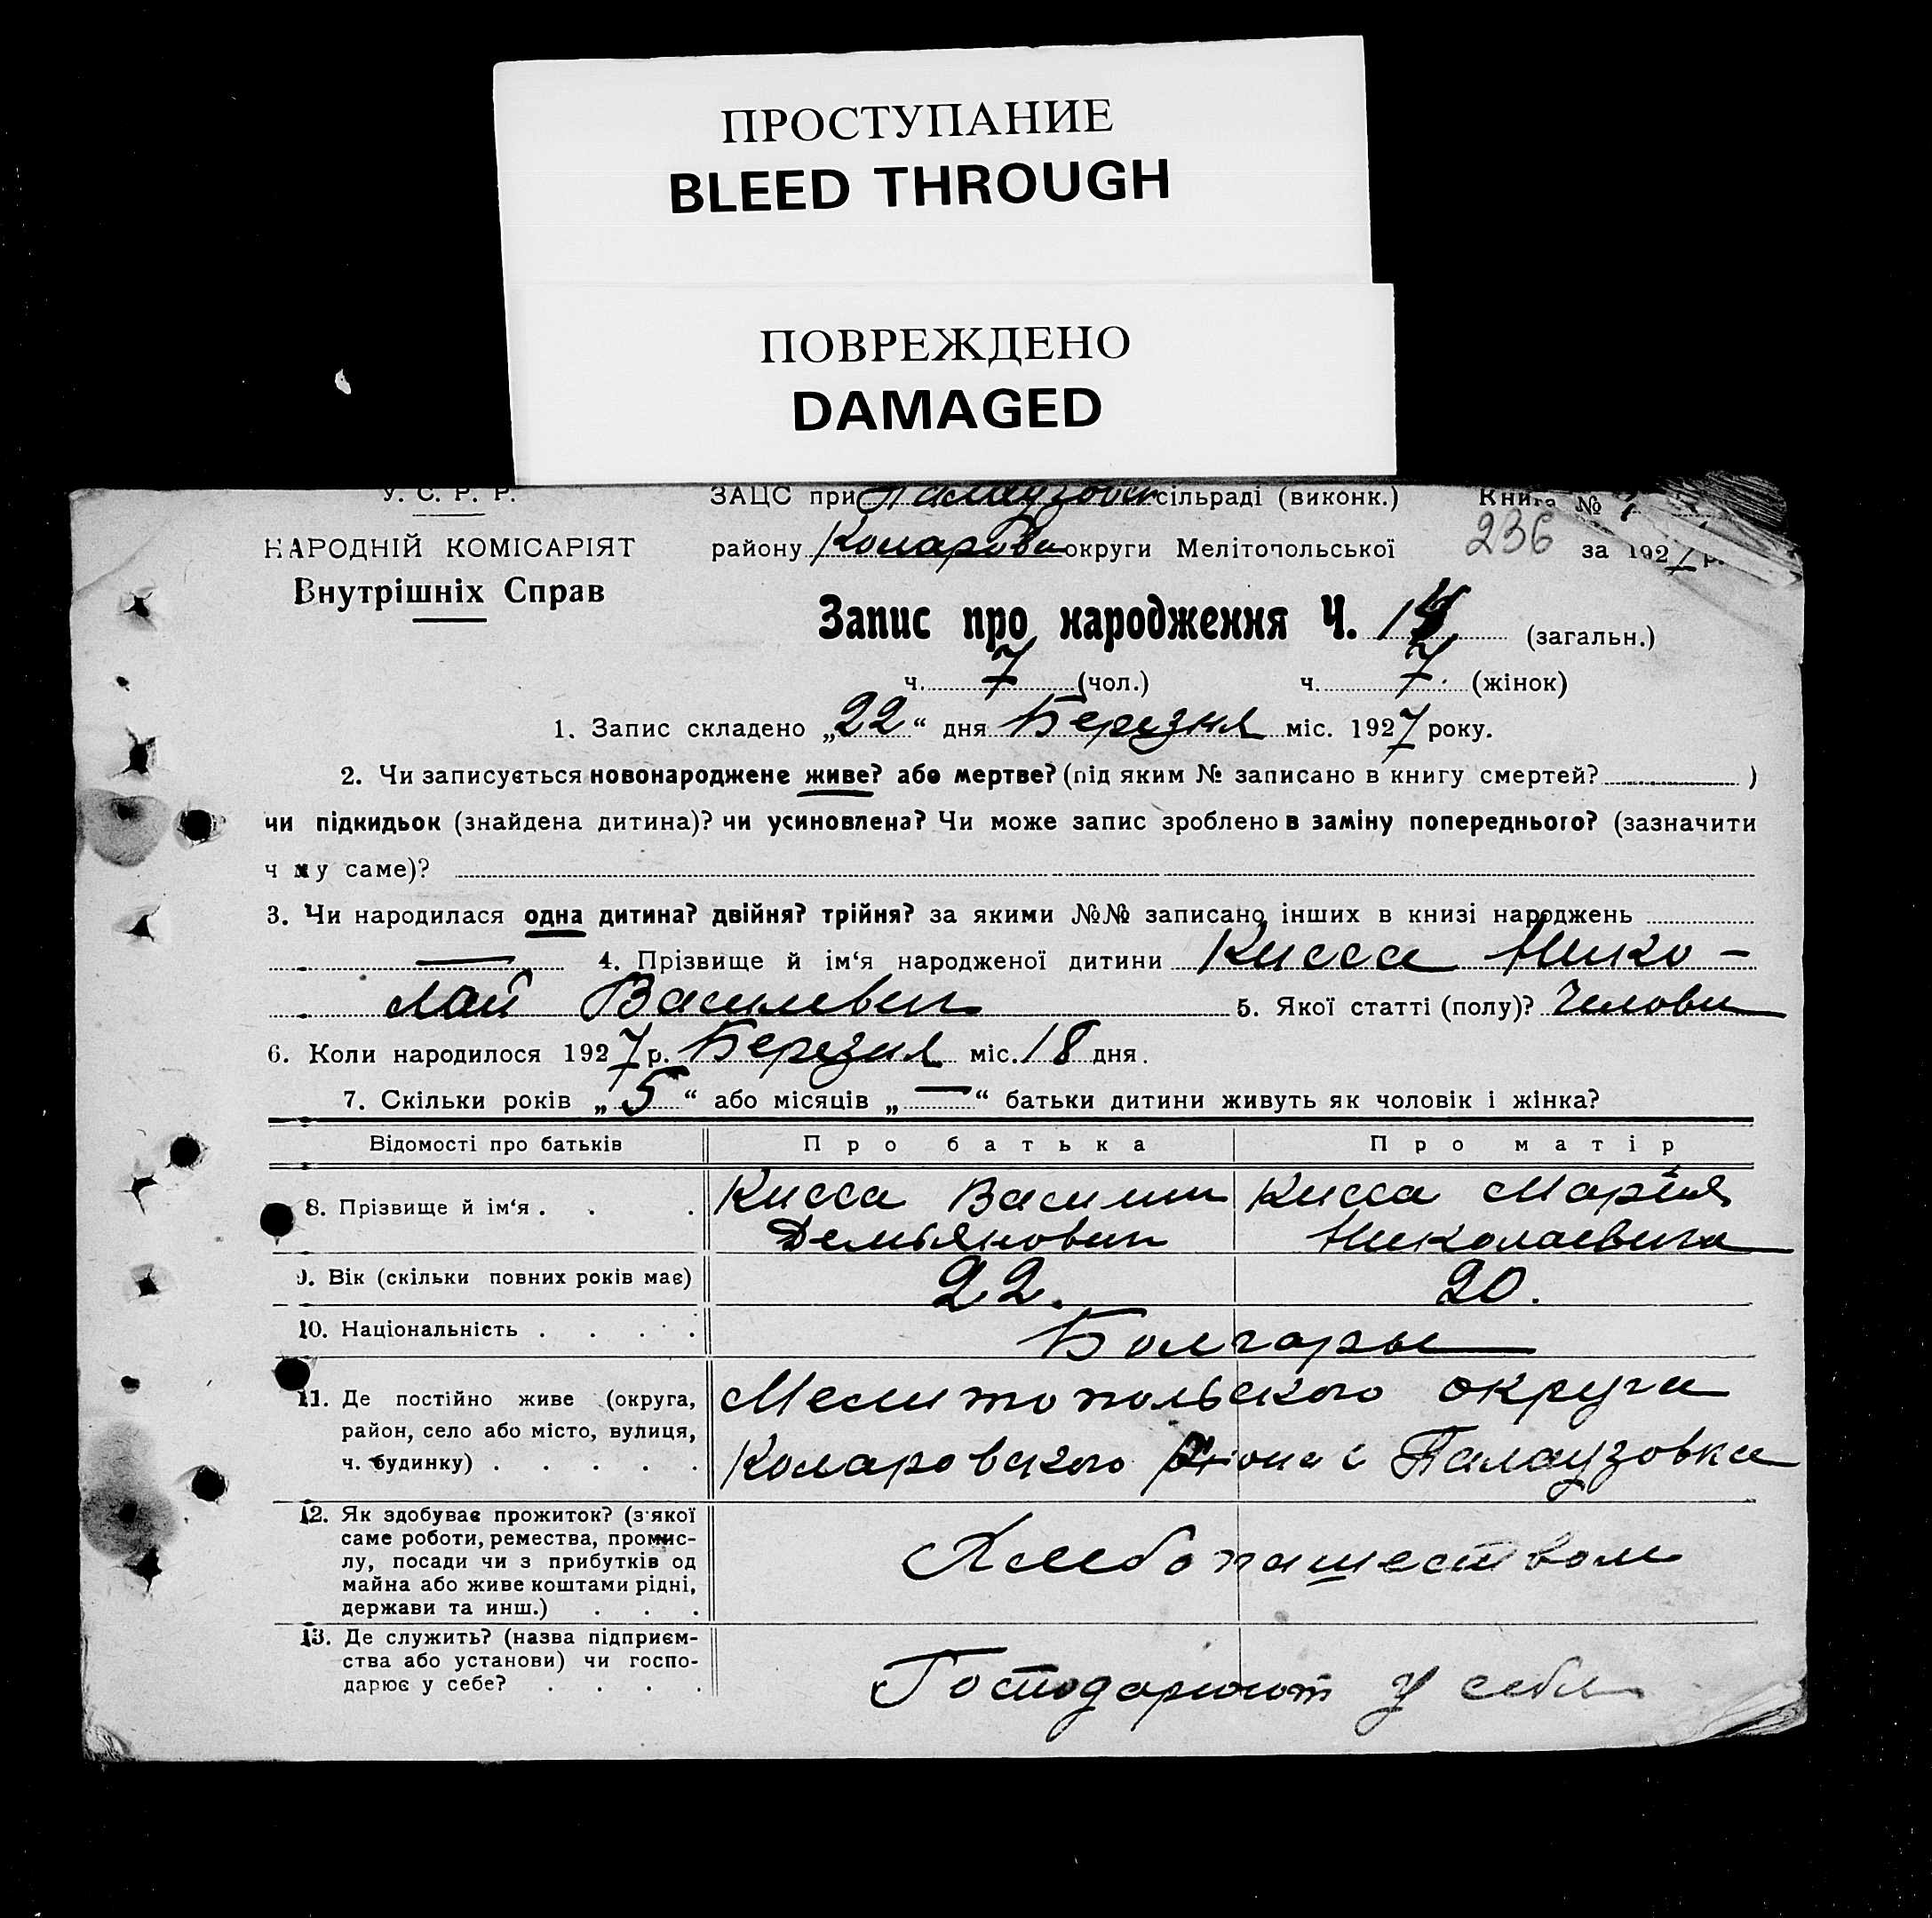 ПРОСТУПАНИЕ
BLEED THROUGH
ПОВРЕЖДЕНО
DAMAGED
У. С. Р. Р.
ЗАЦС при Палаузовк сільраді (виконк.) Книга №
НАРОДНІЙ КОМІСАРІЯТ
району Коларовк округи Мелітопольської 236 за 1927 р.
Внутрішніх Справ
Запис про народження Ч. 14 (загальн.)
ч. 7 (чол.) ч. 7 (жінок)
1. Запис складено „22“ дня Березня міс. 1927 року.
2. Чи записується новонароджене живе? або мертве? (під яким № записано в книгу смертей? )
чи підкидьок (знайдена дитина)? чи усиновлена? Чи може запис зроблено в заміну попереднього? (зазначити
чому саме)?
3. Чи народилася одна дитина? двійня? трійня? за якими №№ записано інших в книзі народжень
— 4. Прізвище й ім‘я народженої дитини Кисса Нико-
лай Васильвич 5. Якої статті (полу)? Человеч
6. Коли народилося 1927 р. Березня міс. 18 дня.
7. Скільки років „5“ або місяців „—“ батьки дитини живуть як чоловік і жінка?
Відомості про батьків Про батька Про матір
8. Прізвище й ім‘я . . . Кисса Василий Кисса Мария
Демьянович Николаевича
9. Вік (скільки повних років має) 22. 20.
10. Національність . . . . . Болгары
11. Де постійно живе (округа, Мелитопольского округа
район, село або місто, вулиця,
ч. будинку) . . . . . Коларовского района с Палаузовка
12. Як здобуває прожиток? (з‘якої
саме роботи, ремества, промис-
лу, посади чи з прибутків од Хлебопашеством
майна або живе коштами рідні,
держави та инш.) . . .
13. Де служить? (назва підприєм-
ства або установи) чи госпо-
дарює у себе? . . . . Господарюют у себя